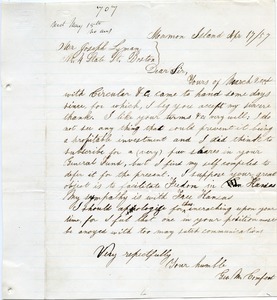 707
Ansd May 14th
no ans
Mormon Island Apr 17/57
Mr Joseph Lyman
No 4 State St. Boston
Dear Sir,
Yours of March
with Circular &c. came to hand some days
since for which, I beg you accept my sincere
thanks. I like your terms very well. I do
not see any thing that could prevent it being
a profitable investment and I did think to
subscribe for a (very) few shares in your
General Fund, but I find my self compelled to
defer it for the present. I suppose your great
object is to facilitate Fredom in Kansas
My sympathy is with Free Kansas
I should apologise for thus encroaching upon your
time, for I feel that one in your position must
be anoyed with too many such communications
Very respectfully
Your humble
Geo. M.